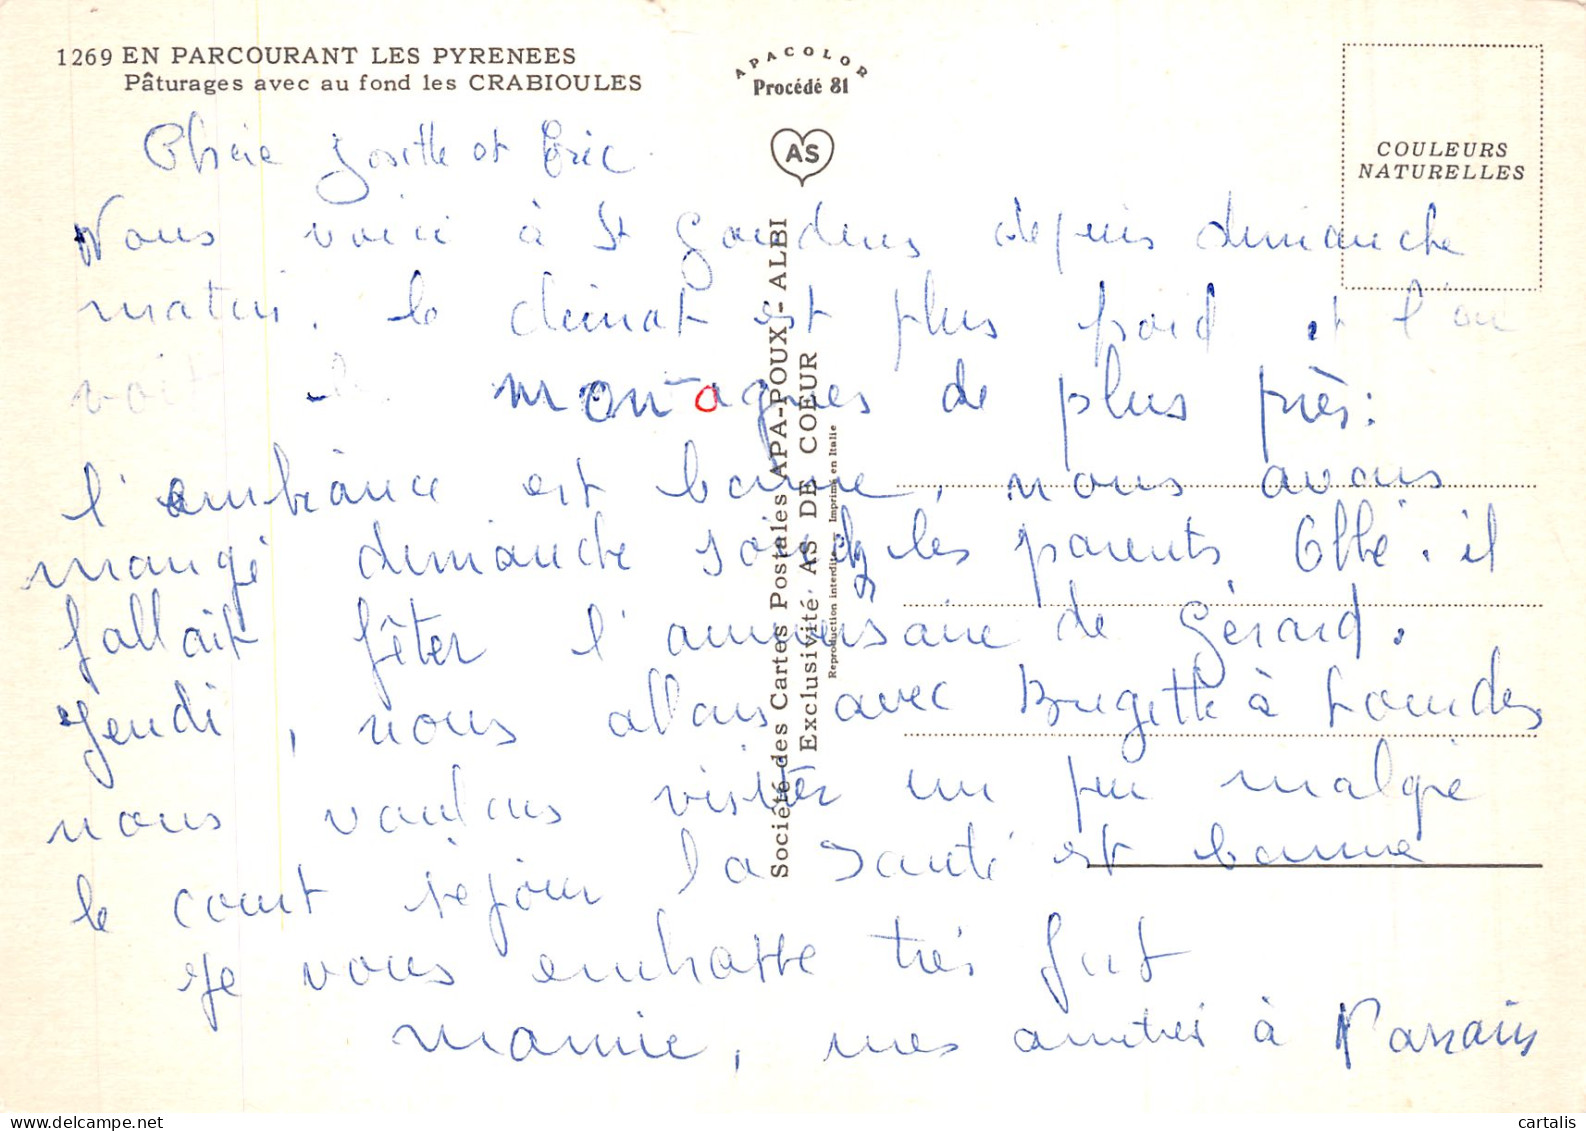 1269 EN PARCOURANT LES PYRENEES
Pâturages avec au fond les CRABIOULES
APACOLOR
Procédé 81
AS
COULEURS
NATURELLES
Société des Cartes Postales APA-POUX - ALBI
Exclusivité AS DE COEUR
Reproduction interdite Imprimé en Italie
Chère Josette et Eric
Nous voici à St Gaudens depuis dimanche
matin. le climat est plus froid et l'on
voit les montagnes de plus près:
l'ambiance est bonne, nous avons
mangé dimanche soir chez les parents il
fallait fêter l'anniversaire de Gérard.
Jeudi, nous allons avec Brigette à Lourdes
nous voulons visiter un peu malgré
le court séjour la santé est bonne
Je vous embrasse très fort
mamie, mes amitiés à Parrain
cartalis